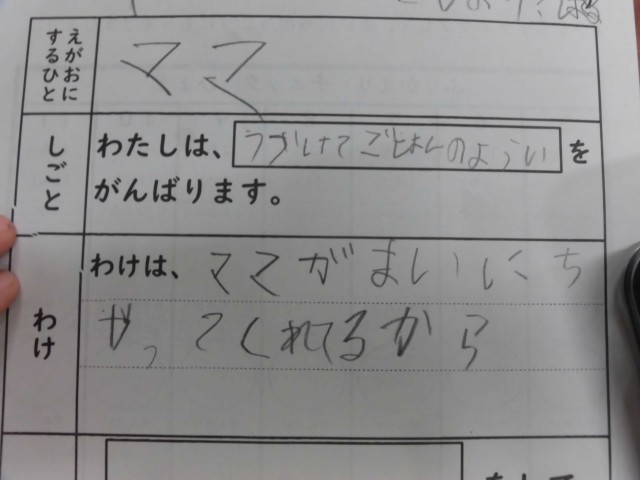 えがおに
するひと
ママ
しごと
わたしは、
ごはんのようい
を
がんばります。
わけ
わけは、ママがまいにち
やってくれてるから